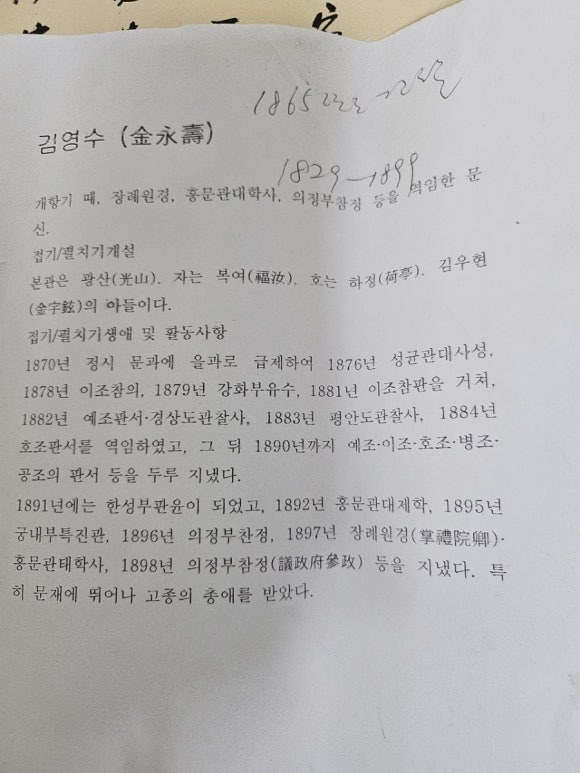 1865
김영수 (金永壽)
1829 - 1899
개항기 때, 장례원경, 홍문관대학사, 의정부참정 등을 역임한 문
신.
접기/펼치기개설
본관은 광산(光山). 자는 복여(福汝), 호는 하정(荷亭). 김우현
(金宇鉉)의 아들이다.
접기/펼치기생애 및 활동사항
1870년 정시 문과에 을과로 급제하여 1876년 성균관대사성,
1878년 이조참의, 1879년 강화부유수, 1881년 이조참판을 거쳐,
1882년 예조판서·경상도관찰사, 1883년 평안도관찰사, 1884년
호조판서를 역임하였고, 그 뒤 1890년까지 예조·이조·호조·병조·
공조의 판서 등을 두루 지냈다.
1891년에는 한성부판윤이 되었고, 1892년 홍문관대제학, 1895년
궁내부특진관, 1896년 의정부찬정, 1897년 장례원경(掌禮院卿)·
홍문관태학사, 1898년 의정부참정(議政府參政) 등을 지냈다. 특
히 문재에 뛰어나 고종의 총애를 받았다.